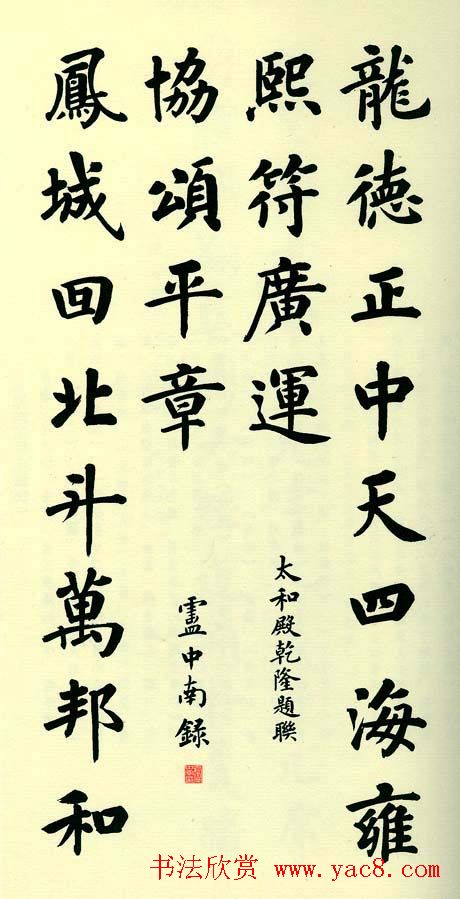 龍德正中天四海雍
熙符廣運
太和殿乾隆題聯
鳳城回北斗萬邦和
協頌平章
盧中南錄
书法欣赏 www.yac8.com